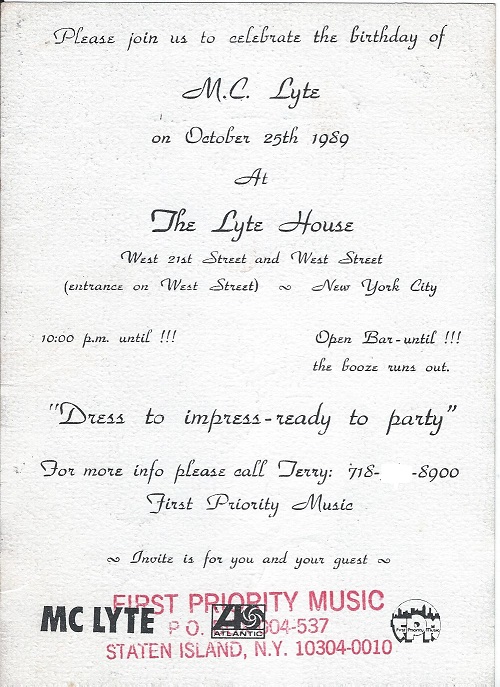 Please join us to celebrate the birthday of
M.C. Lyte
on October 25th 1989
At
The Lyte House
West 21st Street and West Street
(entrance on West Street) ~ New York City
10:00 p.m. until !!!
Open Bar - until !!!
the booze runs out.
"Dress to impress - ready to party"
For more info please call Terry: 718- -8900
First Priority Music
~ Invite is for you and your guest ~
FIRST PRIORITY MUSIC
MC LYTE
ATLANTIC
First Priority Music
P O. 04-537
STATEN ISLAND, N.Y. 10304-0010